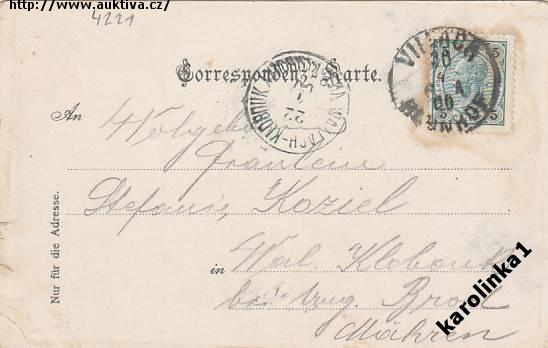 http://www.auktiva.cz/
4221
Correspondenz-Karte.
VILLACH
BAHNHOF
An
Wolgeboren
Fräulein
Stefanie Koziel
in Wal. Klobouk
bei Ung. Brod
Mähren
Nur für die Adresse.
karolinka1